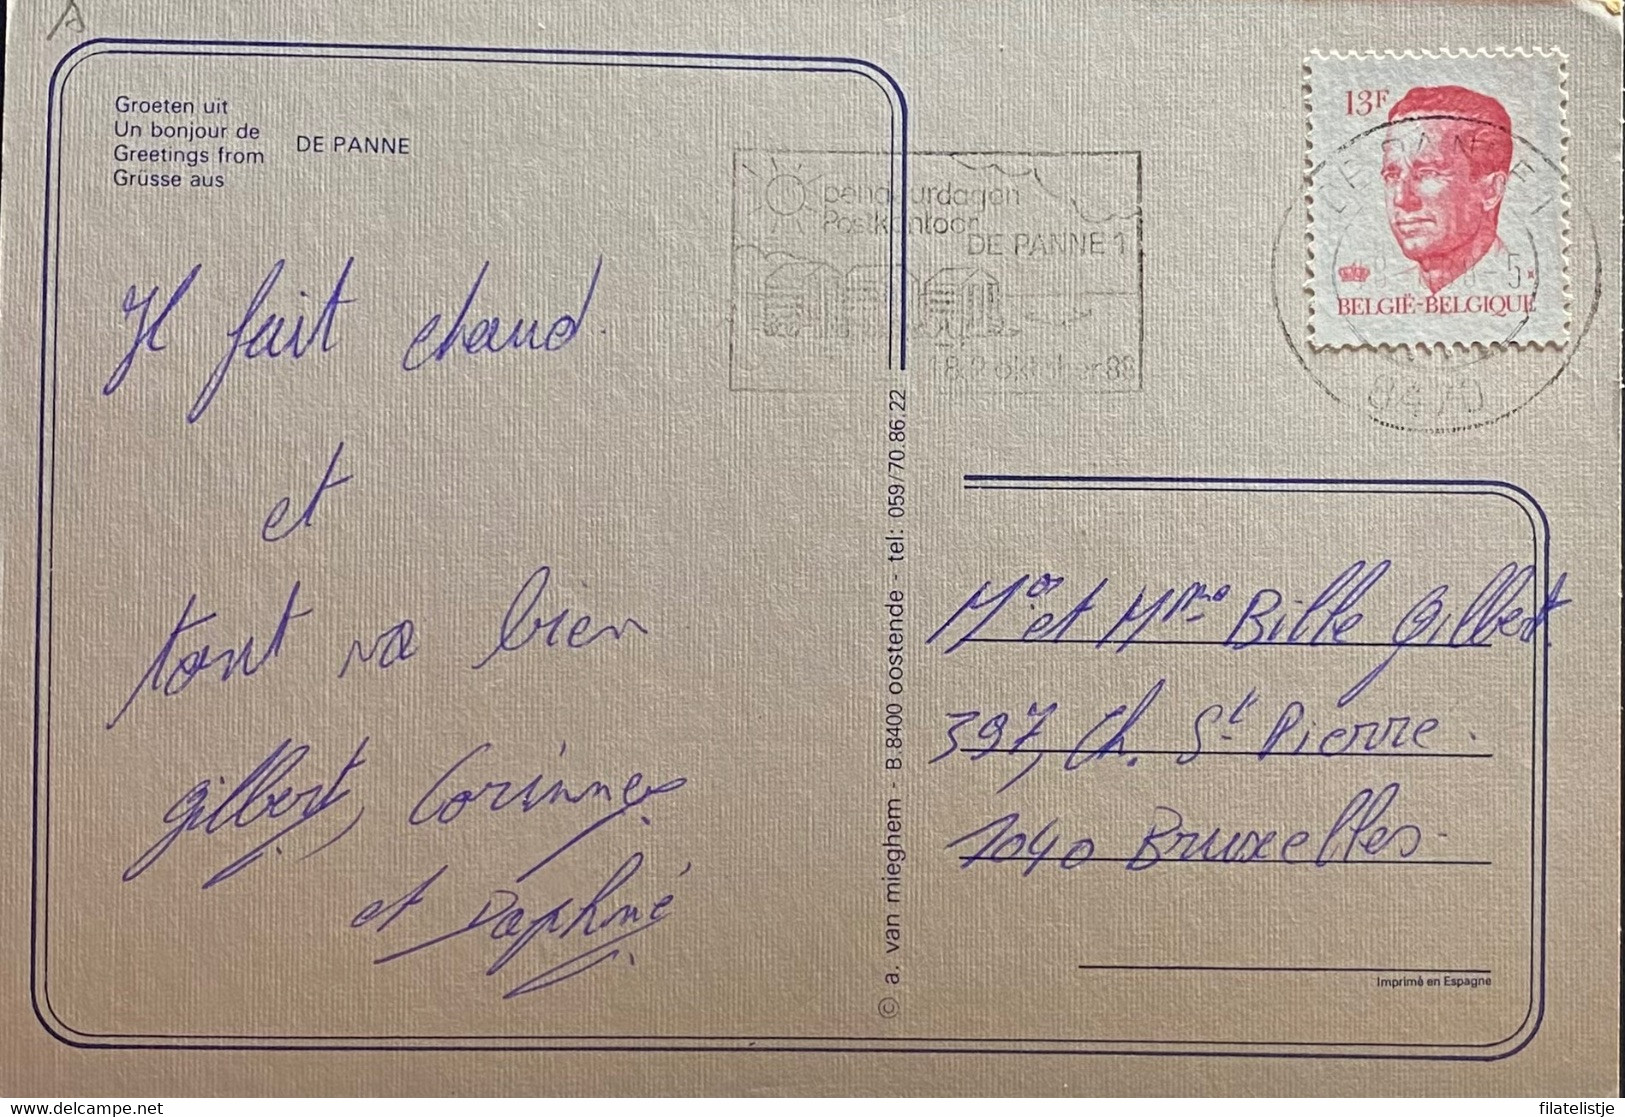 A
Groeten uit
Un bonjour de
Greetings from
Grüsse aus
DE PANNE
Il fait chaud.
et
tout va bien
Gilbert, Corinne
et Daphné
© a. van mieghem - B.8400 oostende - tel: 059/70.86.22
opendeurdagen
Postkantoor
DE PANNE 1
1 & 2 oktober 88
13F
BELGIË-BELGIQUE
DE PANNE 1
8470
Mr et Mme Bille Gilbert.
397, Ch. St Pierre.
1040 Bruxelles.
Imprimé en Espagne
filatelistje
delcampe.net